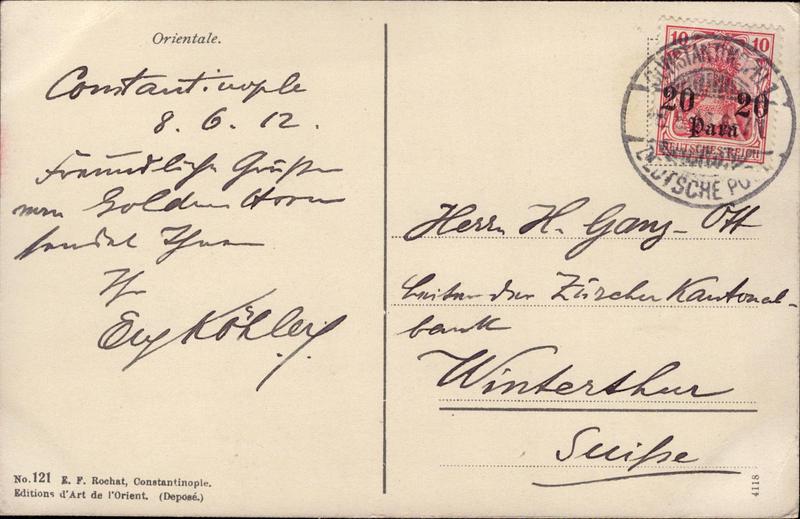 Orientale.
Constantinople
8. 6. 12.
Freundliche Grüsse
vom Golden Horn
sendet Ihnen
Ihr
Eug Köhler
No. 121 E. F. Rochat, Constantinople.
Editions d'Art de l'Orient. (Deposé.)
10 10
20 20
Para
DEUTSCHES REICH
CONSTANTINOPEL 1
DEUTSCHE POST
Herrn H. Ganz-Ott
Leiter der Zürcher Kantonal-
bank
Winterthur
Suisse
4118